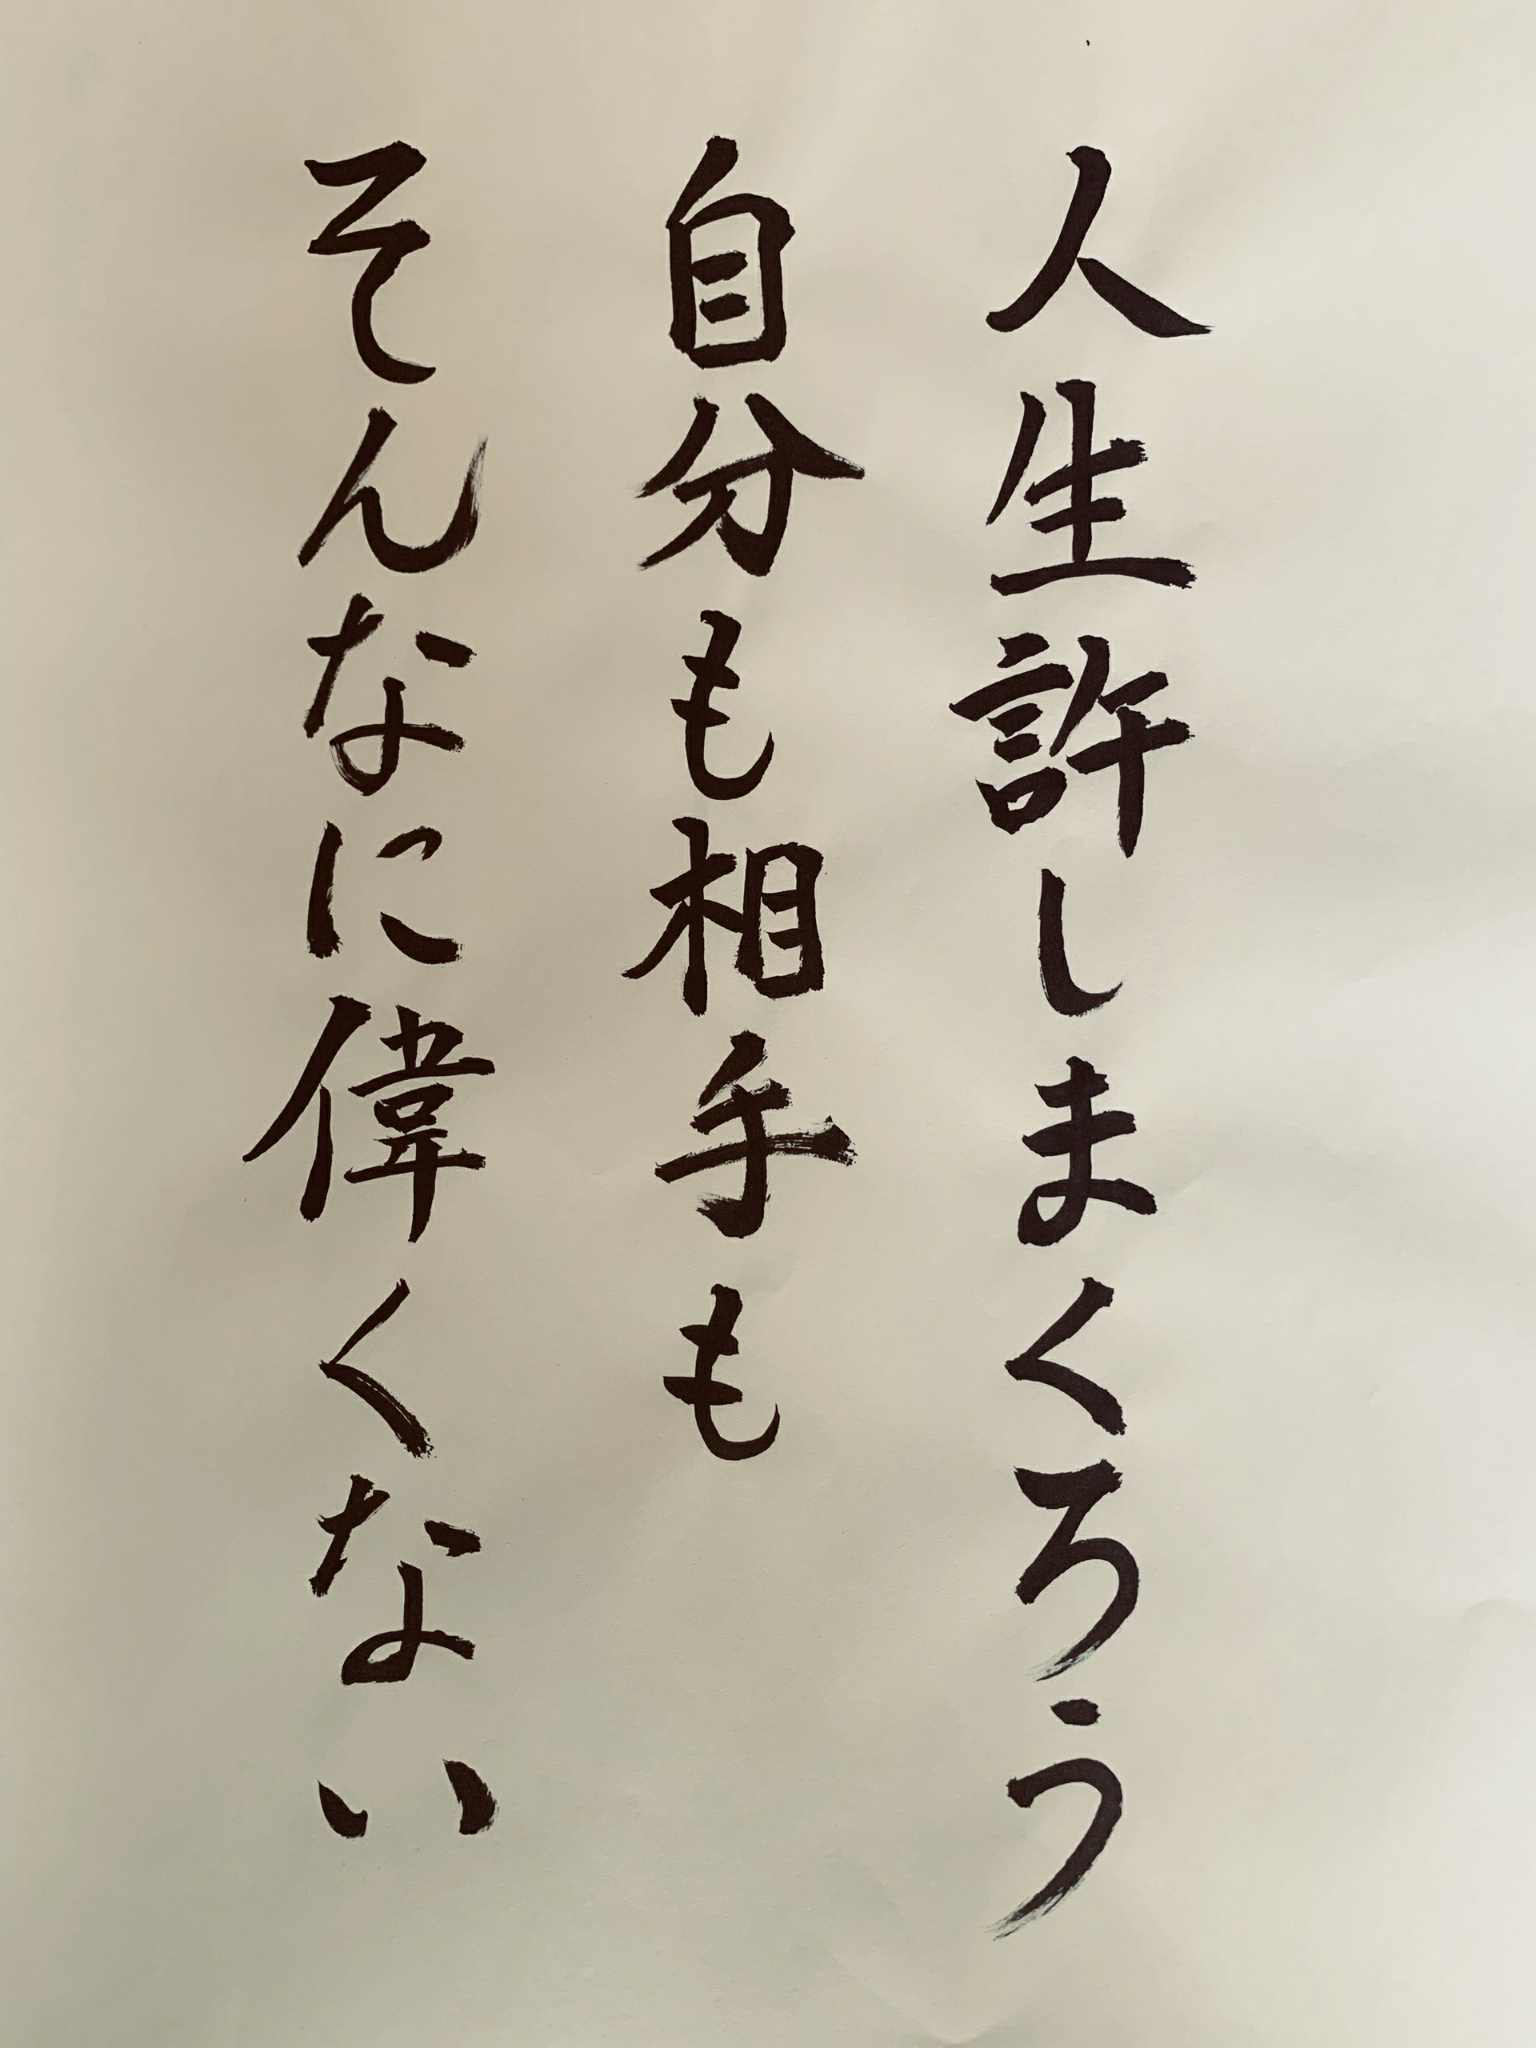 人生許しまくろう
自分も相手も
そんなに偉くない